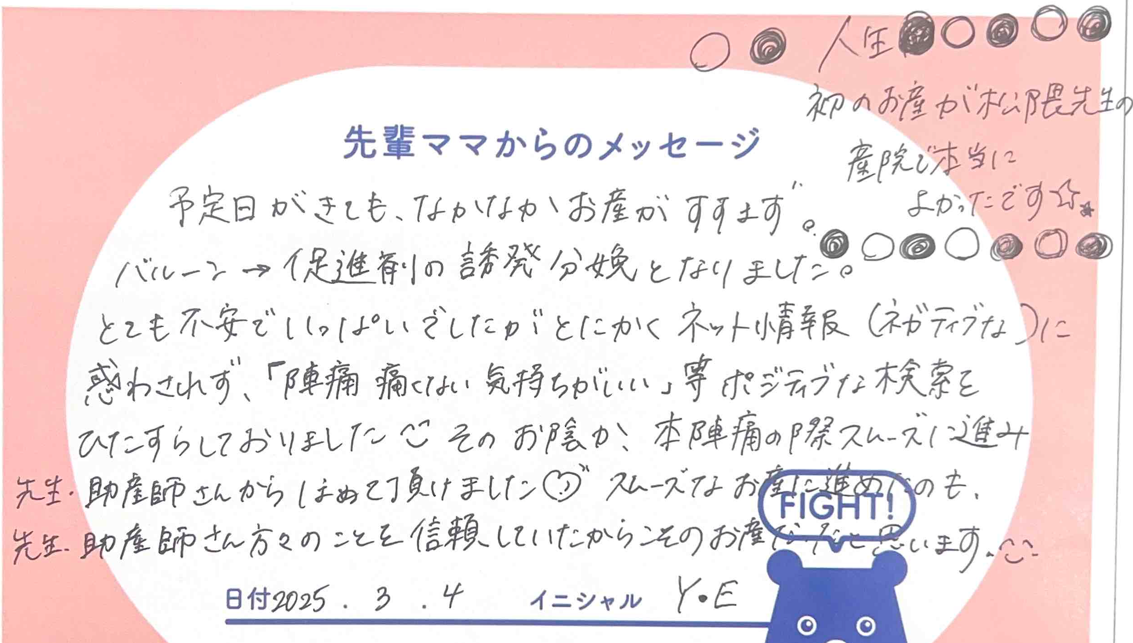 先輩ママからのメッセージ
予定日がきても、なかなかお産がすすまず。
バルーン→促進剤の誘発分娩となりました。
とても不安でいっぱいでしたがとにかくネット情報(ネガティブな)に
惑わされず、「陣痛 痛くない 気持ちがいい」等ポジティブな検索を
ひたすらしておりました そのお陰か、本陣痛の際スムーズに進み
先生・助産師さんからほめて頂けました スムーズなお産に進めたのも、
先生・助産師さん方々のことを信頼していたからこそのお産だったと思います。
人生
初のお産が松隈先生の
産院で本当に
よかったです☆★
FIGHT!
日付2025.3.4 イニシャル Y・E